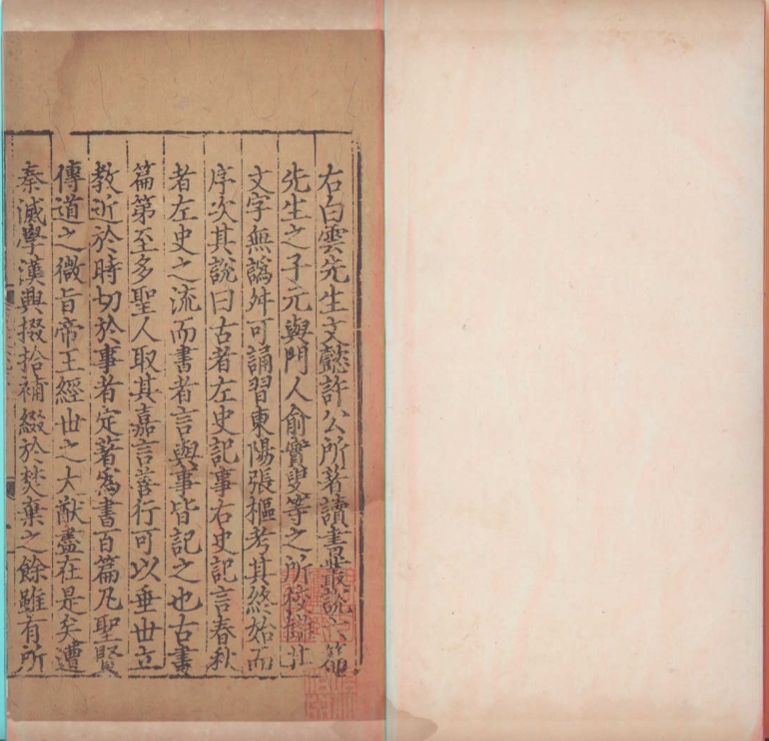 右白雲先生文懿許公所著讀書叢說六
先生之子元與門人俞實叟等之所校
文字無譌舛可誦習東陽張樞考其終始而
序次其說曰古者左史記事右史記言春秋
者左史之流而書者言與事皆記之也古書
篇第至多聖人取其嘉言善行可以垂世立
教近於時切於事者定著爲書百篇凡聖賢
傳道之微旨帝王經世之大猷盡在是矣遭
秦滅學漢興掇拾補綴於焚棄之餘雖有所